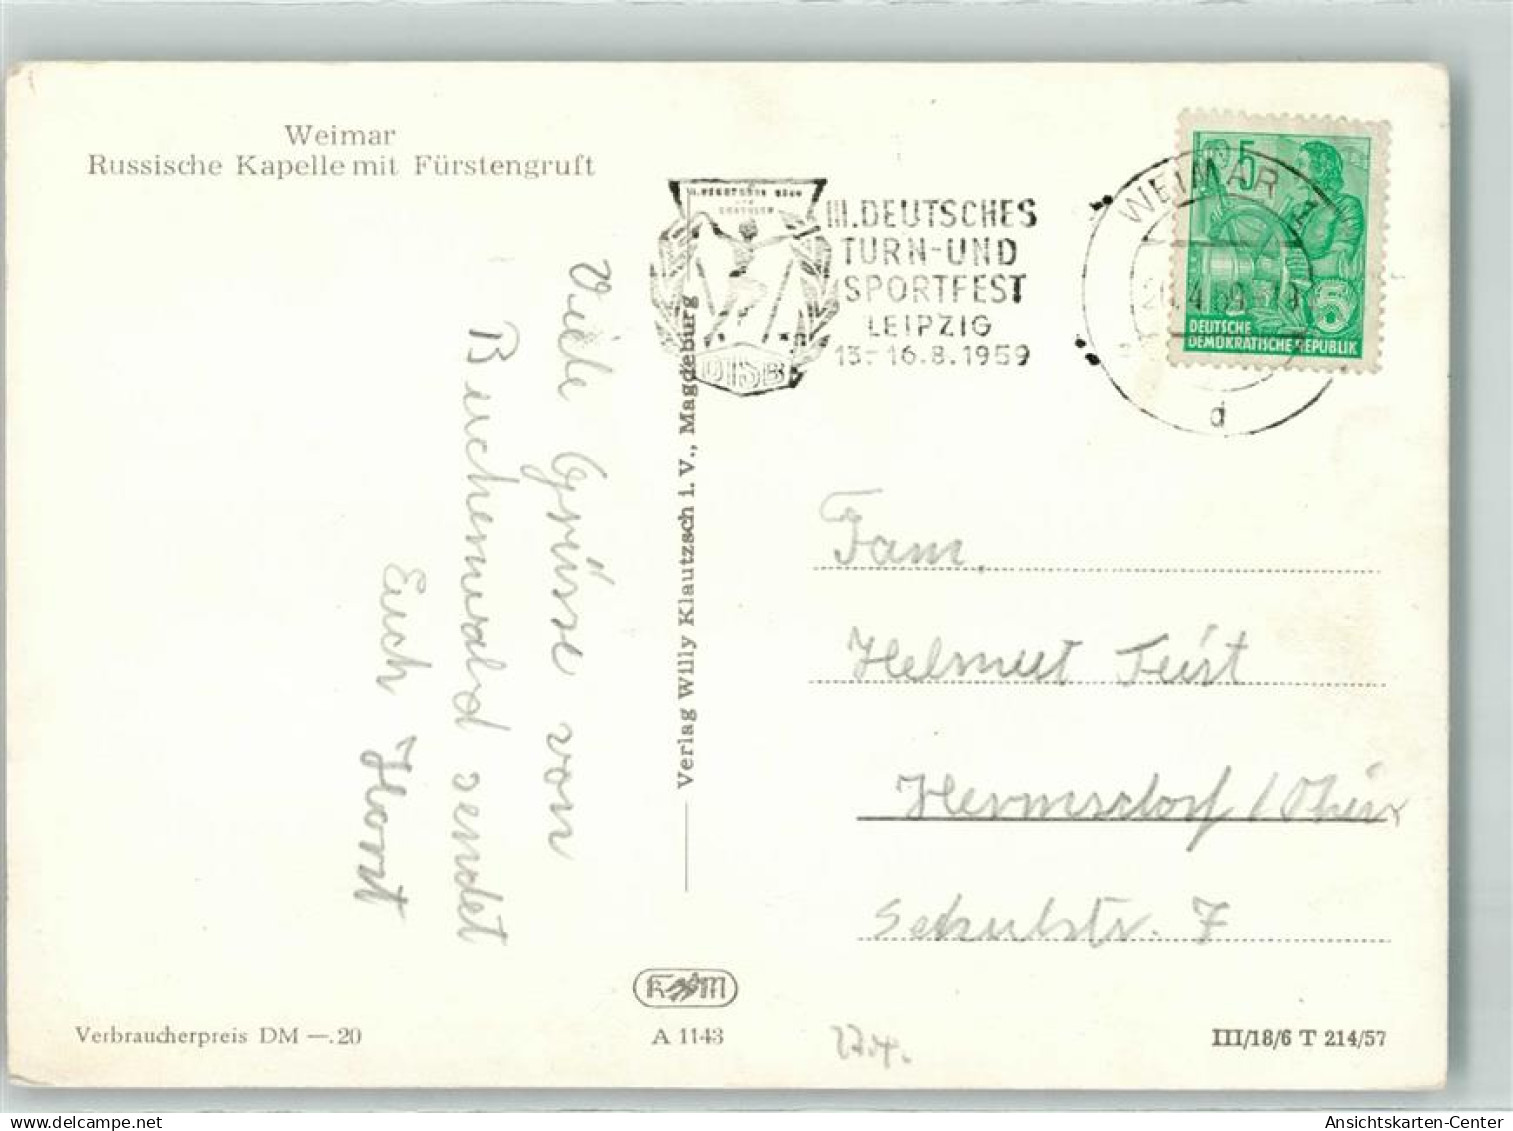 Weimar
Russische Kapelle mit Fürstengruft
Viele Grüsse von
Buchenwald sendet
Euch Horst
Verlag Willy Klautzsch i. V., Magdeburg
III. DEUTSCHES
TURN-UND
SPORTFEST
LEIPZIG
13.-16.8.1959
DTSB
WEIMAR 1
d
5
DEUTSCHE
DEMOKRATISCHE REPUBLIK
5
Fam.
Helmut Feist
Hermsdorf / Thür
Schulstr. 7
Verbraucherpreis DM —.20
A 1143
III/18/6 T 214/57
Ansichtskarten-Center